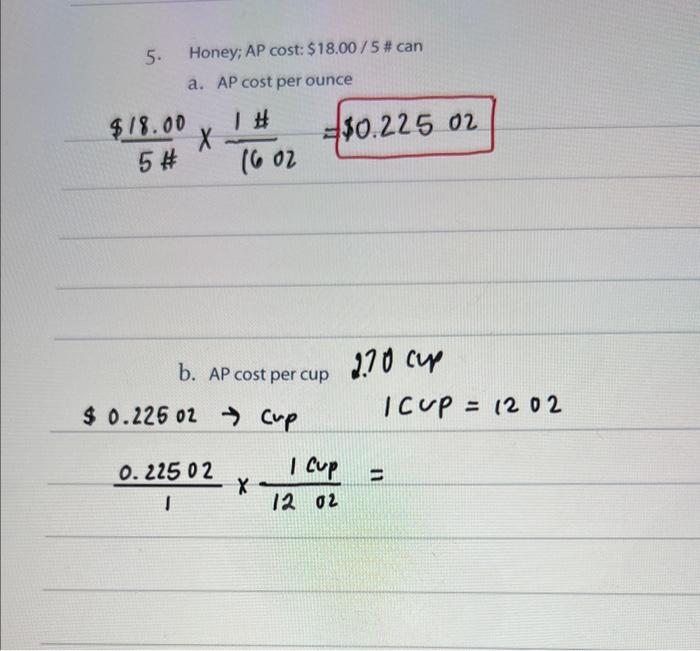 5. Honey; AP cost: $18.00 / 5 # can
a. AP cost per ounce
$18.00 / 5 # x 1 # / 16 oz = $0.225 oz
b. AP cost per cup 2.70 cup
$ 0.225 oz → cup 1 cup = 12 oz
0.225 oz / 1 x 1 cup / 12 oz =